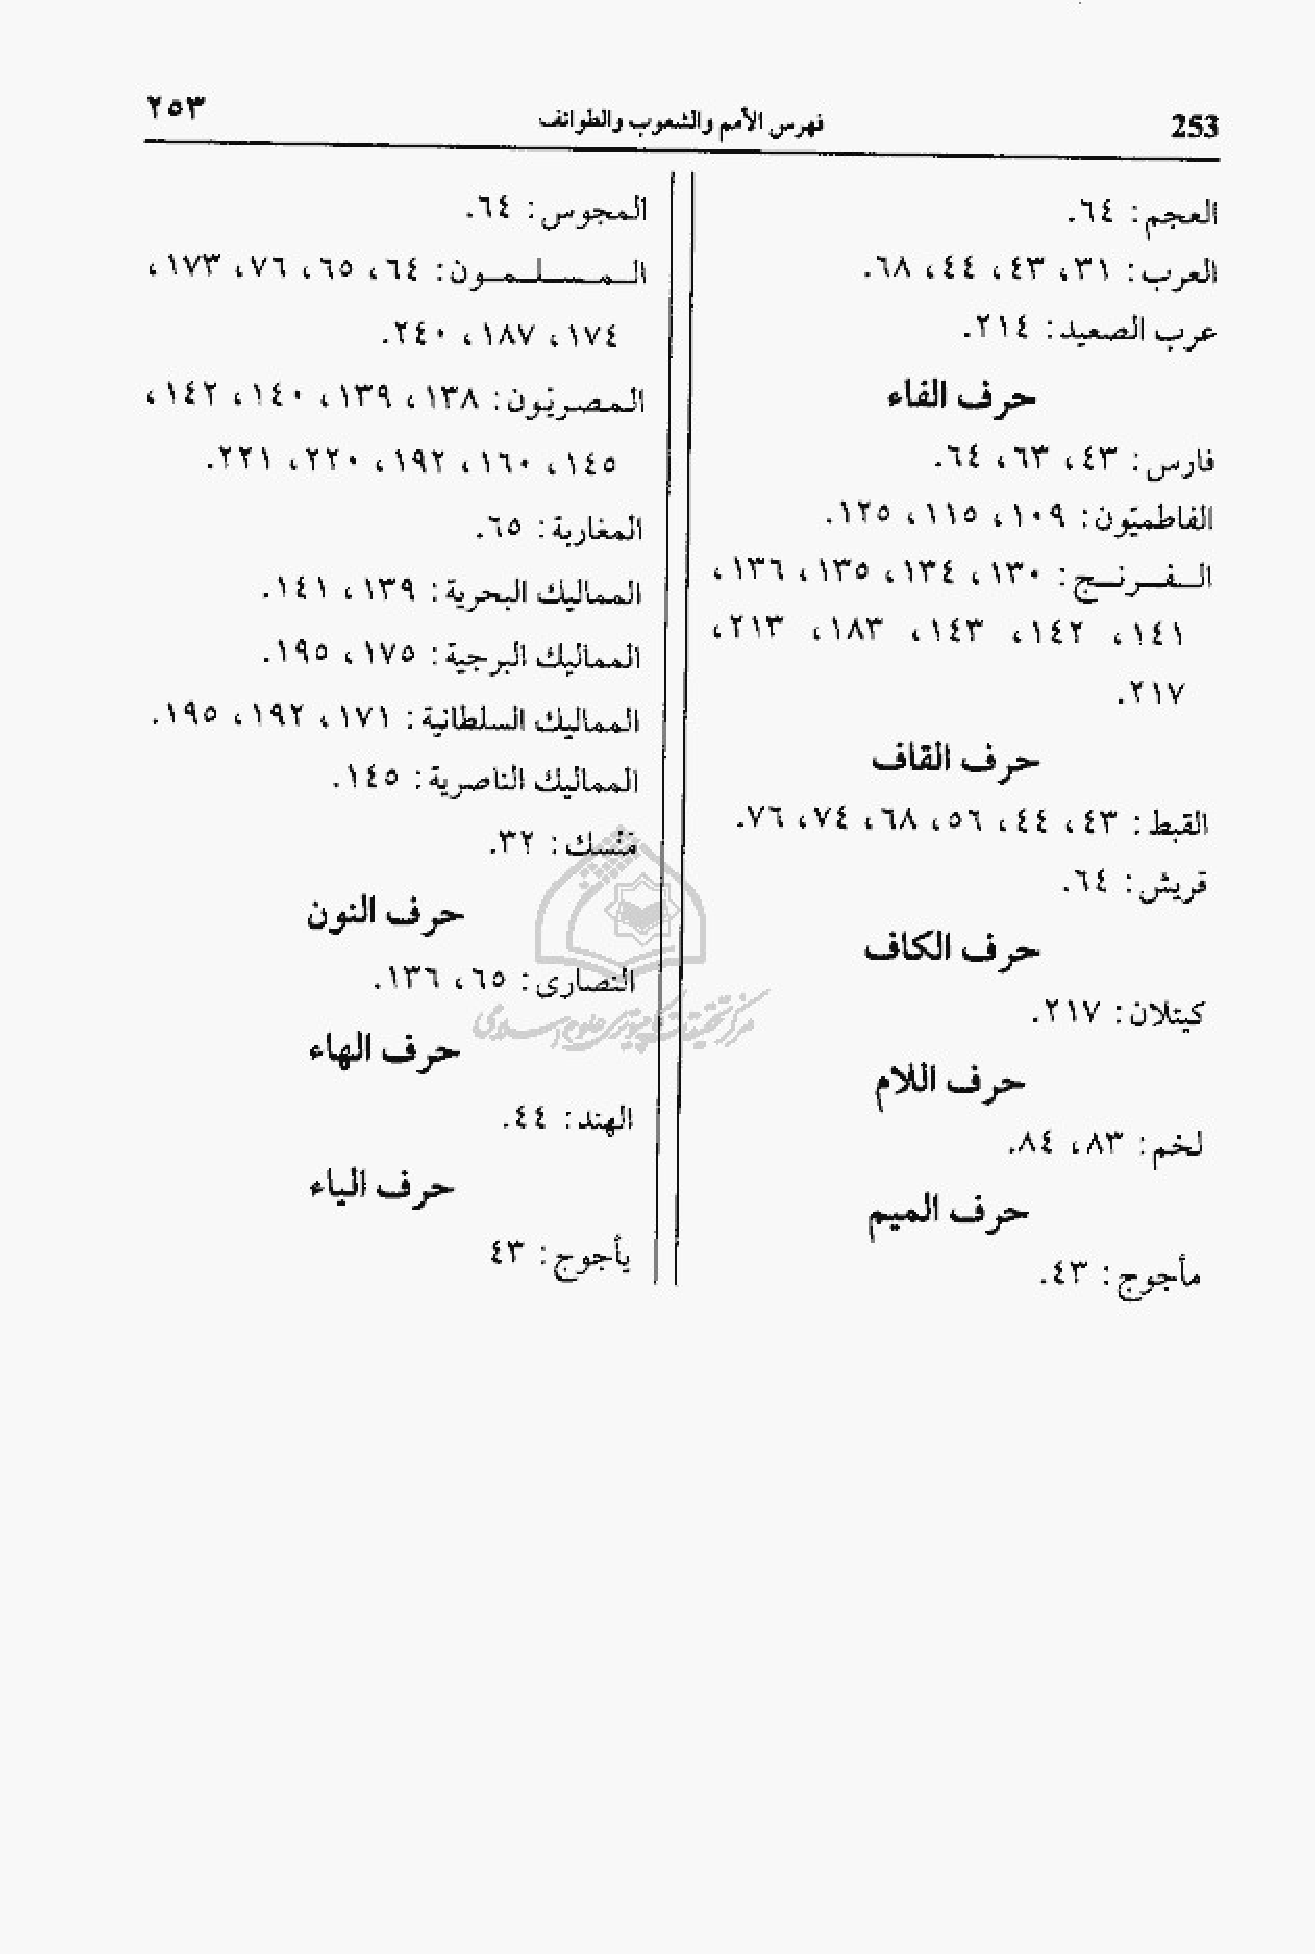 253
فهرس الأمم والشعوب والطوائف
٢٥٣
العجم: ٦٤.
العرب: ٣١، ٤٣، ٤٤، ٦٨.
عرب الصعيد: ٢١٤.
حرف الفاء
فارس: ٤٣، ٦٣، ٦٤.
الفاطميّون: ١٠٩، ١١٥، ١٢٥.
الـفـرنـج: ١٣٠، ١٣٤، ١٣٥، ١٣٦،
١٤١، ١٤٢، ١٤٣، ١٨٣، ٢١٣،
٢١٧.
حرف القاف
القبط: ٤٣، ٤٤، ٥٦، ٦٨، ٧٤، ٧٦.
قريش: ٦٤.
حرف الكاف
كيتلان: ٢١٧.
حرف اللام
لخم: ٨٣، ٨٤.
حرف الميم
مأجوج: ٤٣.
المجوس: ٦٤.
الـمـسـلـمـون: ٦٤، ٦٥، ٧٦، ١٧٣،
١٧٤، ١٨٧، ٢٤٠.
المصريّون: ١٣٨، ١٣٩، ١٤٠، ١٤٢،
١٤٥، ١٦٠، ١٩٢، ٢٢٠، ٢٢١.
المغاربة: ٦٥.
المماليك البحرية: ١٣٩، ١٤١.
المماليك البرجية: ١٧٥، ١٩٥.
المماليك السلطانية: ١٧١، ١٩٢، ١٩٥.
المماليك الناصرية: ١٤٥.
مَنْسك: ٣٢.
حرف النون
النصارى: ٦٥، ١٣٦.
حرف الهاء
الهند: ٤٤.
حرف الياء
يأجوج: ٤٣
مرکز تحقیقات کامپیوتری علوم اسلامی